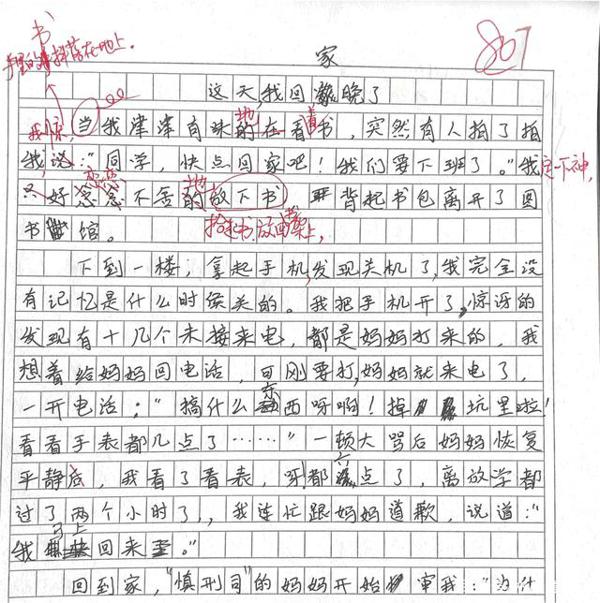 书
手里的书抖落在地上。
家
807
这天,我回家晚了
我惊,
当我津津有味的在看书,突然有人拍了拍
地
着
我说:“同学,快点回家吧!我们要下班了。”我
定一下神,
只好恋恋不舍的放下书 背起书包离开了图
地
拾起书,放回书架上,
书馆。
下到一楼,拿起手机,发现关机了,我完全没
有记忆是什么时候关的。我把手机开了,惊讶的
发现有十几个未接来电,都是妈妈打来的,我
想着给妈妈回电话,可刚要打,妈妈就来电了,
一开电话:“搞什么东西呀啊!掉坑里啦!
看看手表都几点了……”一顿大骂后妈妈恢复
平静后,我看了看表,呀!都六点了,离放学都
过了两个小时了,我连忙跟妈妈道歉,说道:“
我马上回来。”
回到家,“慎刑司”的妈妈开始审我:“为什